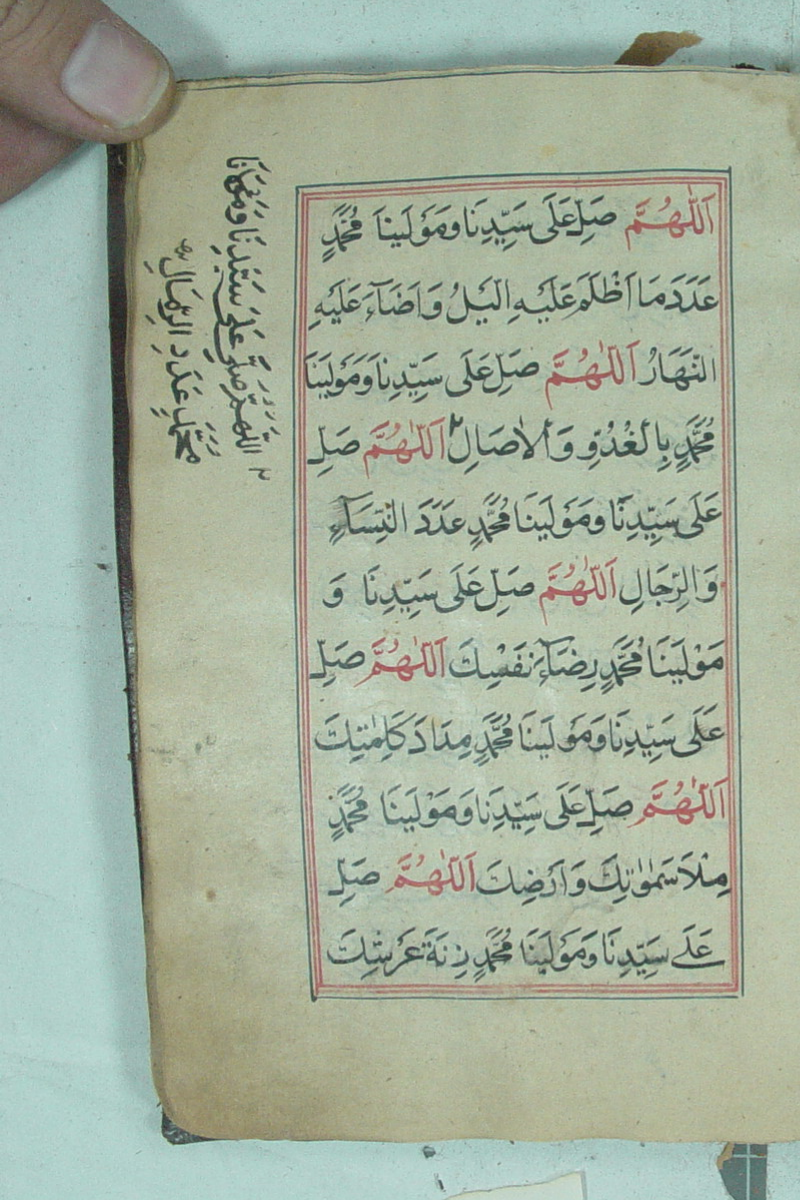 اَللّٰهُمَّ صَلِّ عَلَى سَيِّدِنَا وَمَوْلَيْنَا مُحَمَّدٍ
عَدَدَ مَا اَظْلَمَ عَلَيْهِ الَّيْلُ وَاَضَآءَ عَلَيْهِ
النَّهَارُ اَللّٰهُمَّ صَلِّ عَلَى سَيِّدِنَا وَمَوْلَيْنَا
مُحَمَّدٍ بِالْغُدُوِّ وَالْاٰصَالِ اَللّٰهُمَّ صَلِّ
عَلَى سَيِّدِنَا وَمَوْلَيْنَا مُحَمَّدٍ عَدَدَ النِّسَآءِ
وَالرِّجَالِ اَللّٰهُمَّ صَلِّ عَلَى سَيِّدِنَا وَ
مَوْلَيْنَا مُحَمَّدٍ رِضَآءَ نَفْسِكَ اَللّٰهُمَّ صَلِّ
عَلَى سَيِّدِنَا وَمَوْلَيْنَا مُحَمَّدٍ مِدَادَ كَلِمٰتِكَ
اَللّٰهُمَّ صَلِّ عَلَى سَيِّدِنَا وَمَوْلَيْنَا مُحَمَّدٍ
مِلْاَ سَمٰوٰتِكَ وَاَرْضِكَ اَللّٰهُمَّ صَلِّ
عَلَى سَيِّدِنَا وَمَوْلَيْنَا مُحَمَّدٍ زِنَةَ عَرْشِكَ
اللّٰهُمَّ صَلِّ عَلَى سَيِّدِنَا وَمَوْلٰنَا
مُحَمَّدٍ عَدَدِ الرِّمَالِ